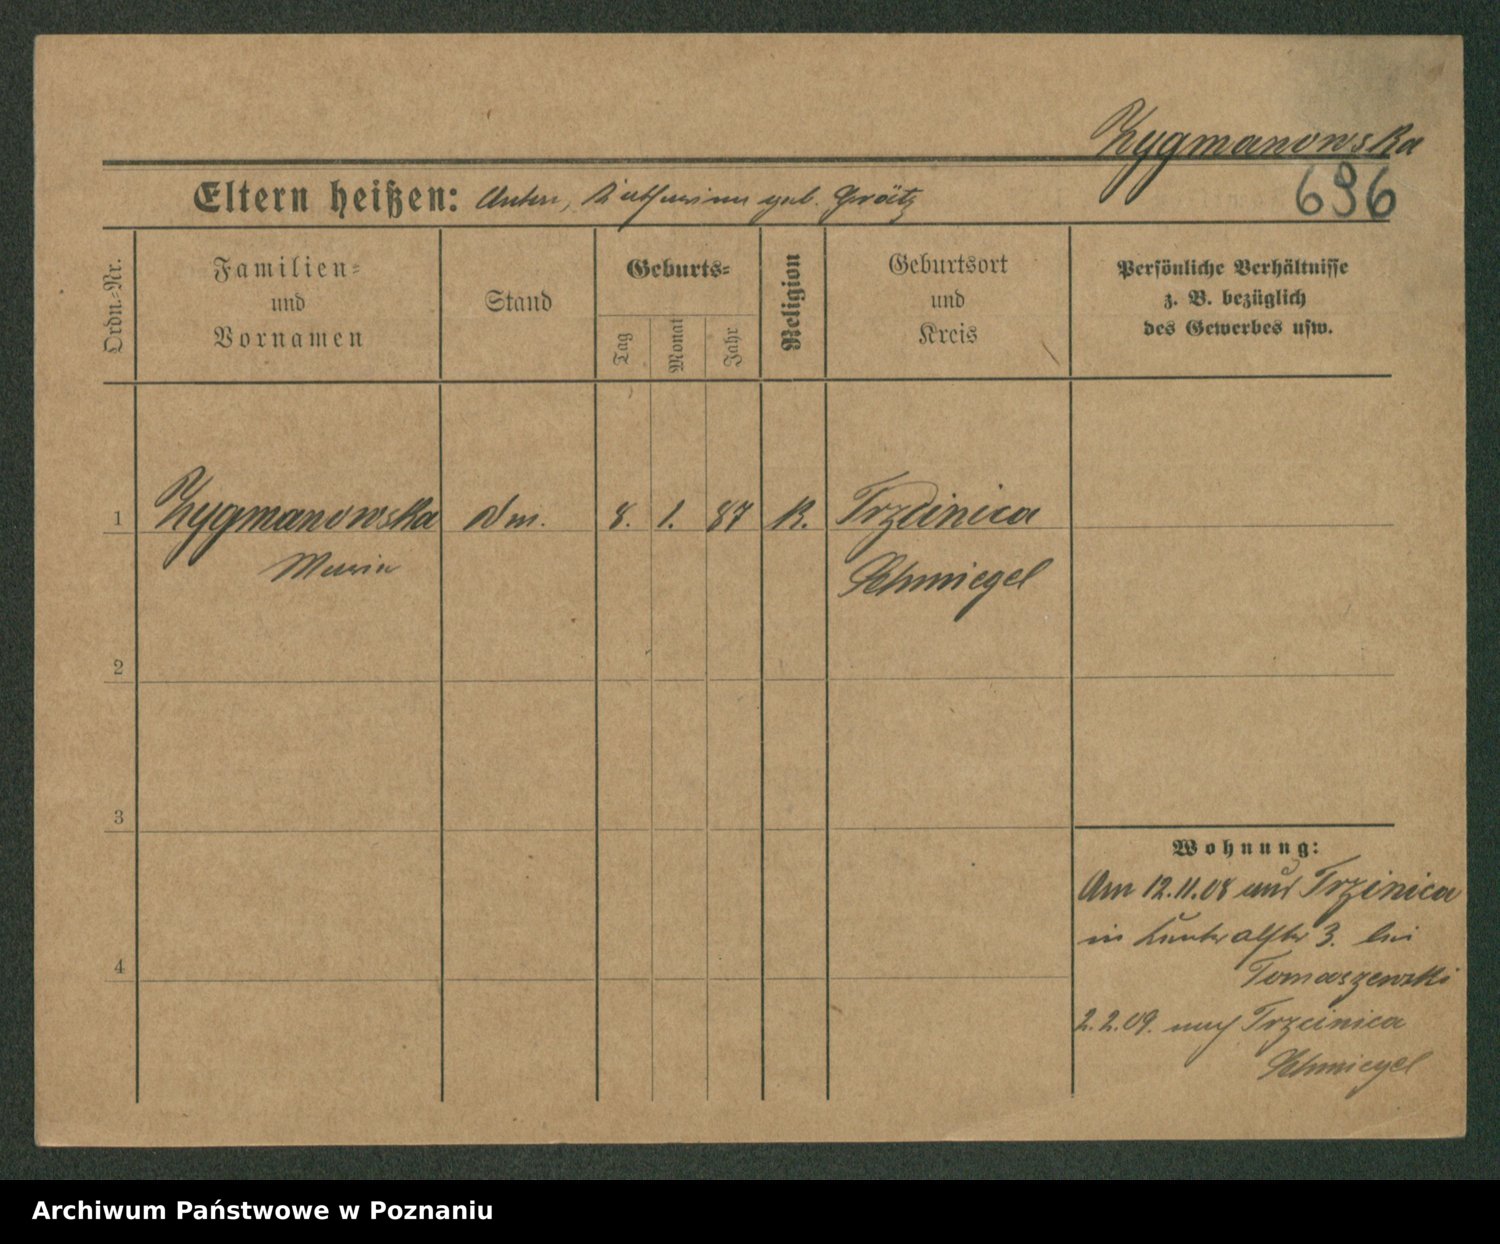 Zygmanowska
Eltern heißen: Anton, Katharina geb. Grätz
696
Ordn.-Nr.
Familien-
und
Vornamen
Stand
Geburts-
Tag
Monat
Jahr
Religion
Geburtsort
und
Kreis
Persönliche Verhältnisse
z. B. bezüglich
des Gewerbes usw.
1 Zygmanowska Dm. 8. 1. 87 K. Trzcinica
Maria Schmiegel
2
3
4
Wohnung:
Am 12.11.08 aus Trzinica
in 3. bei
Tomaszewski
2.2.09. nach Trzcinica
Schmiegel
Archiwum Państwowe w Poznaniu